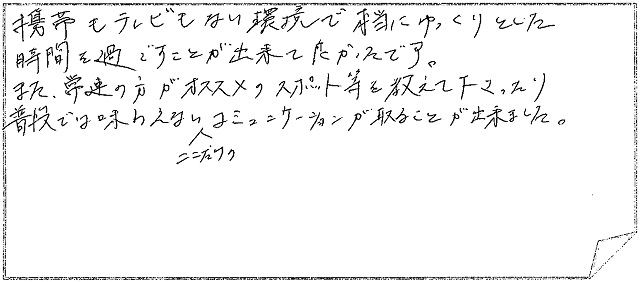 携帯もテレビもない環境で本当にゆっくりとした
時間を過ごすことが出来て良かったです。
また、常連の方がオススメのスポット等を教えて下さったり
普段では味わえないコミュニケーションが取ることが出来ました。
ここだけの